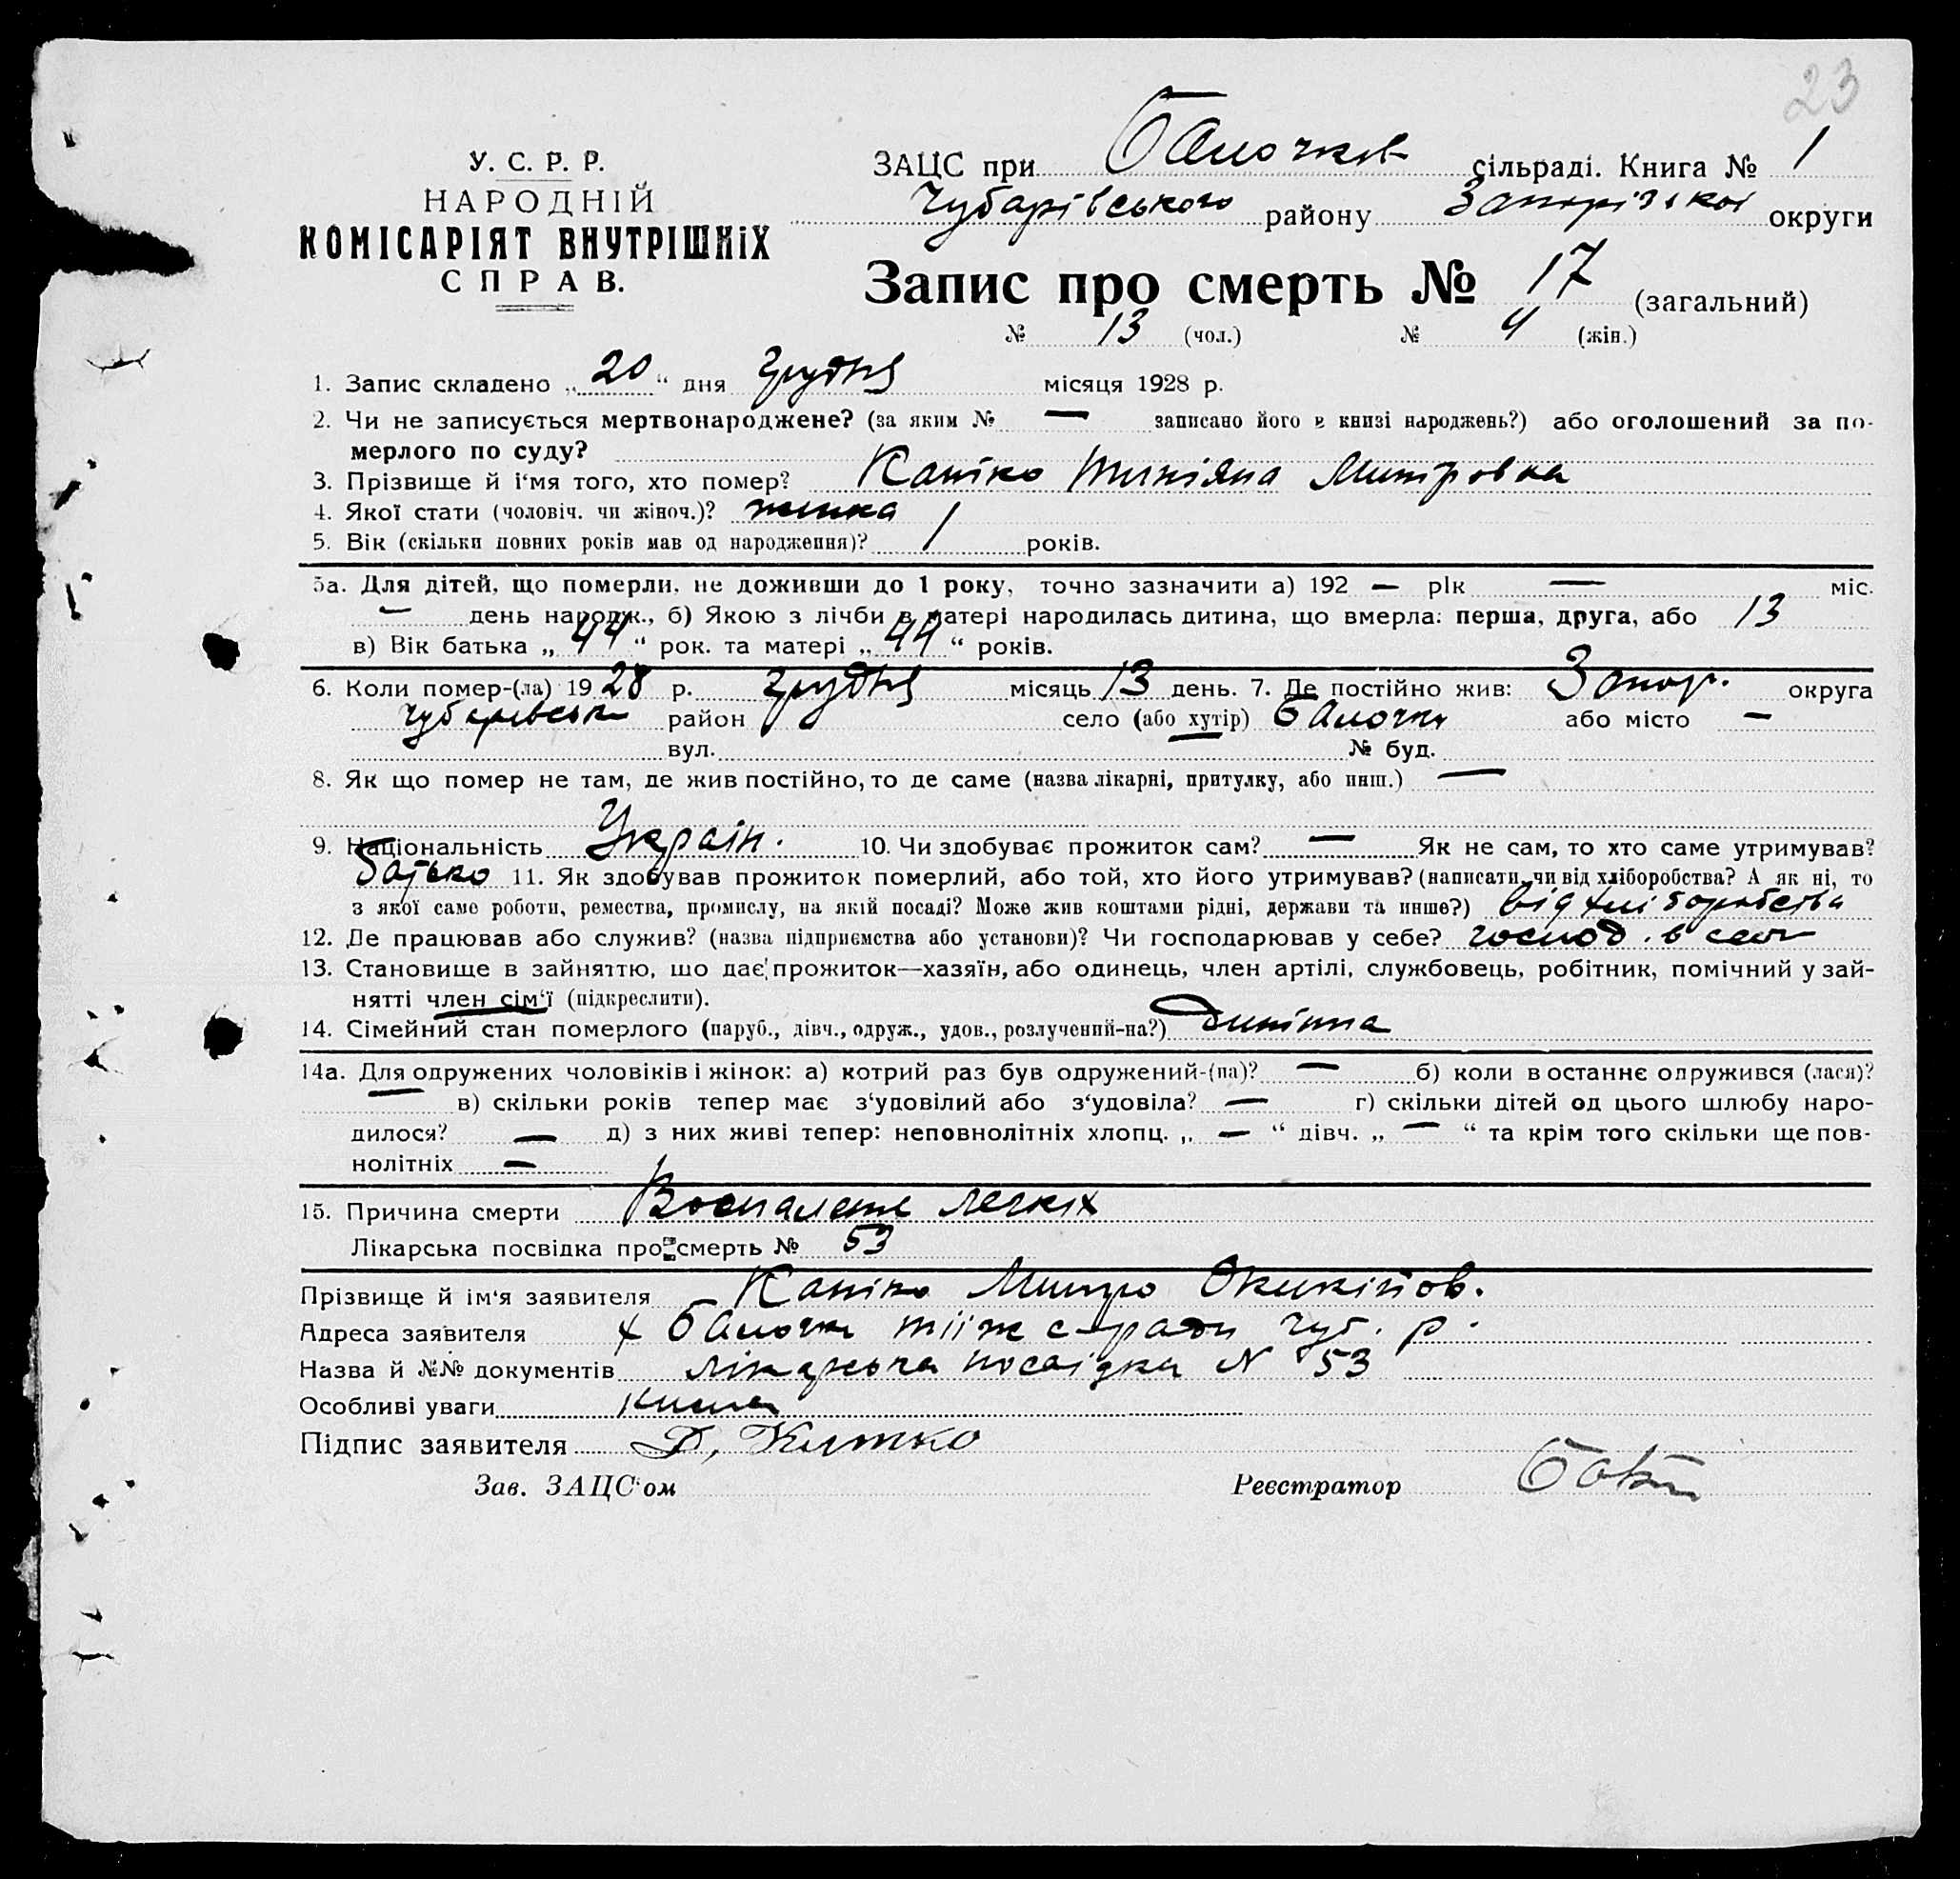 23
У. С. Р. Р.
НАРОДНІЙ
КОМІСАРІЯТ ВНУТРІШНІХ
СПРАВ.
ЗАЦС при Балочков сільраді. Книга № 1
Чубарівського району Запорізької округи
Запис про смерть № 17 (загальний)
№ 13 (чол.) № 4 (жін.)
1. Запис складено „ 20 “ дня грудня місяця 1928 р.
2. Чи не записується мертвонароджене? (за яким № — записано його в книзі народжень?) або оголошений за по-
мерлого по суду?
3. Прізвище й і‘мя того, хто помер? Митровна
4. Якої стати (чоловіч. чи жіноч.)? жинка
5. Вік (скільки повних років мав од народження)? 1 років.
5а. Для дітей, що померли, не доживши до 1 року, точно зазначити а) 192 — рік — міс.
— день народж., б) Якою з лічби в матері народилась дитина, що вмерла: перша, друга, або 13
в) Вік батька „ 44 “ рок. та матері „ 44 “ років.
6. Коли помер-(ла) 19 28 р. грудня місяць 13 день. 7. Де постійно жив: Запор. округа
Чубарівськ район село (або хутір) Балочки або місто —
вул. № буд.
8. Як що помер не там, де жив постійно, то де саме (назва лікарні, притулку, або инш.) —
9. Національність Україн. 10. Чи здобуває прожиток сам? — Як не сам, то хто саме утримував?
батько 11. Як здобував прожиток померлий, або той, хто його утримував? (написати, чи від хліборобства? А як ні, то
з якої саме роботи, ремества, промислу, на якій посаді? Може жив коштами рідні, держави та инше?) від хліборобства
12. Де працював або служив? (назва підприємства або установи)? Чи господарював у себе? господ. в
13. Становище в зайняттю, що дає прожиток—хазяїн, або одинець, член артілі, службовець, робітник, помічний у зай-
нятті член сім‘ї (підкреслити).
14. Сімейний стан померлого (паруб., дівч., одруж., удов., розлучений-на?) дитина
14а. Для одружених чоловіків і жінок: а) котрий раз був одружений-(на)? — б) коли в останнє одружився (лася)?
— в) скільки років тепер має з‘удовілий або з‘удовіла? — г) скільки дітей од цього шлюбу наро-
дилося? — д) з них живі тепер: неповнолітніх хлопц. „ — “ дівч. „ — “ та крім того скільки ще пов-
нолітніх —
15. Причина смерти Воспалені легких
Лікарська посвідка про смерть № 53
Прізвище й ім‘я заявителя Митро
Адреса заявителя х Балочки тіїж с-ради Чуб. р.
Назва й №№ документів лікарська посвідка N 53
Особливі уваги
Підпис заявителя Д,
Зав. ЗАЦС‘ом Реєстратор